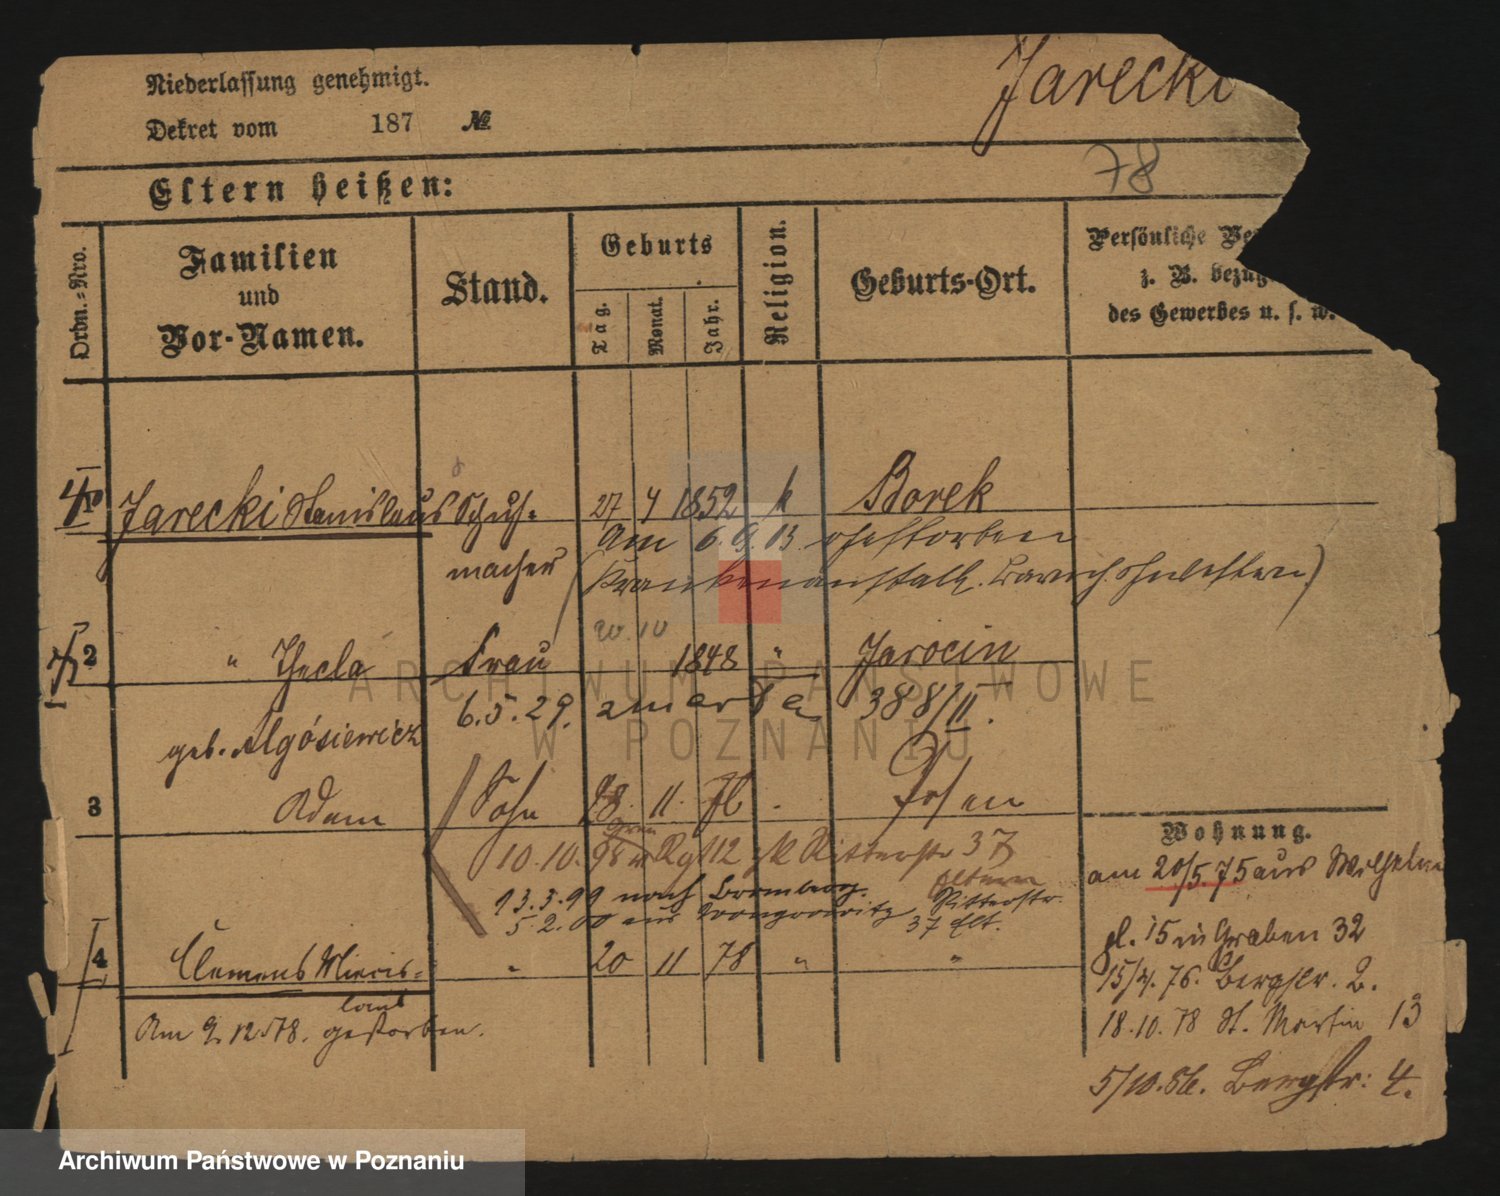 Niederlassung genehmigt.
Dekret vom 187 №
Jarecki
78
Eltern heißen:
Ordn.-Nro.
Familien
und
Vor-Namen.
Stand.
Geburts
Tag.
Monat.
Jahr.
Religion.
Geburts-Ort.
Persönliche Ve
z. B. bezüg
des Gewerbes u. s. w.
1 Jarecki Stanislaus Schuh- 27 4 1852 k Borek
macher
Am 6.9.13 gestorben
(Krankenanstalt barmh. Schwestern)
20. 10
2 " Thecla Frau 1848 " Jarocin
geb. Algósiewicz
6.5.29. zmarła 388/II.
3 Adam Sohn 11. Posen
10.10.98 Rgt 12 Ritterstr 37
Eltern
13.3.99 nach Bromberg.
5.2.00 aus Wongrowitz Ritterstr.
37 Elt.
4 Clemens Miecis= " 20 11 78 " "
laus
Am 9.12.78. gestorben.
Wohnung.
am 20/5.75 aus Wilhelm
pl. 15 in Graben 32
15/4.76. Bergstr. 2.
18.10.78 St. Martin 13
5/10.86. Bergstr: 4.
ARCHIWUM PAŃSTWOWE
W POZNANIU
Archiwum Państwowe w Poznaniu